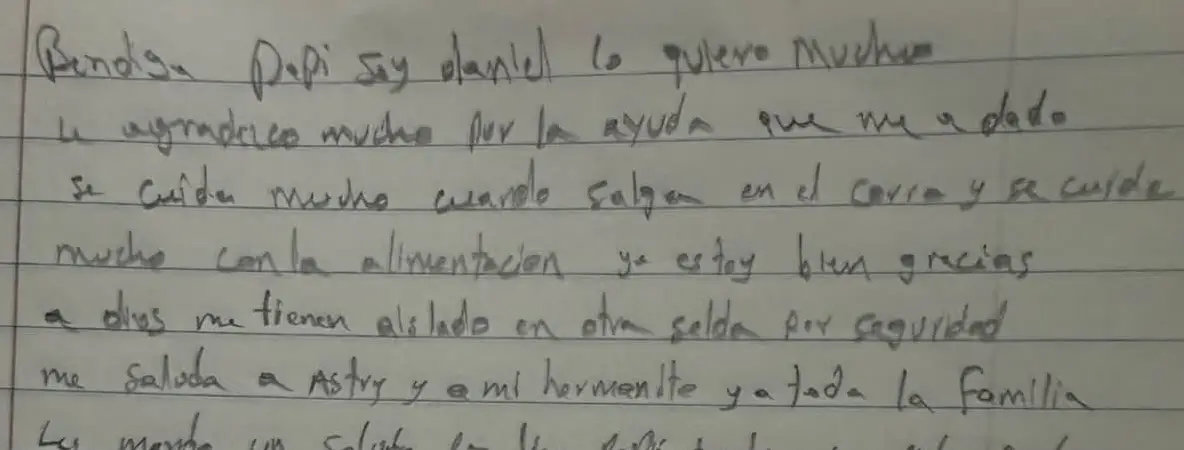 Bendiga Papi soy daniel lo quiero mucho
le agradezco mucho por la ayuda que me a dado
se cuida mucho cuando salga en el carro y se cuida
mucho con la alimentacion ya estoy bien gracias
a dios me tienen aislado en otra selda por seguridad
me saluda a Astry y a mi hermanite y a toda la familia
les mando un